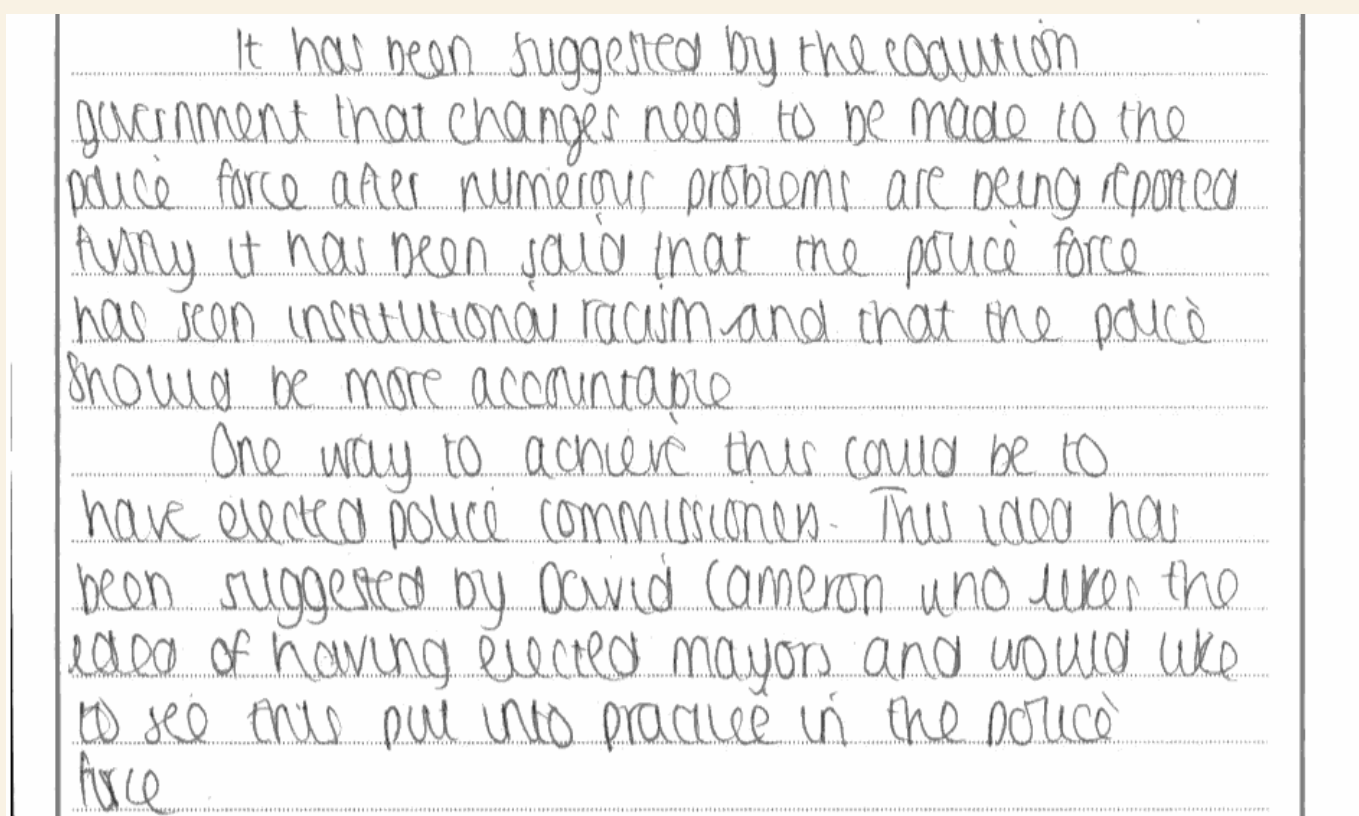 It has been suggested by the coalition
government that changes need to be made to the
police force after numerous problems are being reported
firstly it has been said that the police force
has seen institutional racism and that the police
should be more accountable
One way to achieve this could be to
have elected police commissioners. This idea has
been suggested by David Cameron who likes the
idea of having elected mayors and would like
to see this put into practice in the police
force